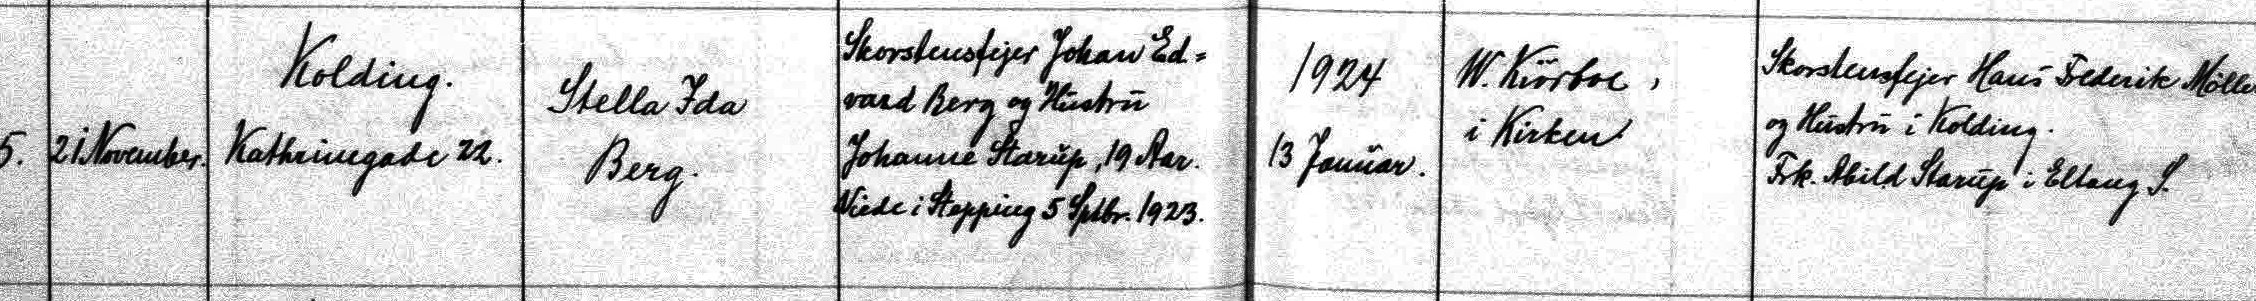 5.
21 November.
Kolding.
Kathrinegade 22.
Stella Ida
Berg.
Skorstensfejer Johan Ed=
vard Berg og Hustru
Johanne Starup, 19 Aar.
Viede i Stepping 5 Sptbr. 1923.
1924
13 Januar.
W. Kiörboe,
i Kirken
Skorstensfejer Hans Frederik Möller
og Hustru i Kolding.
Frk. Abild Starup i Eltang S.